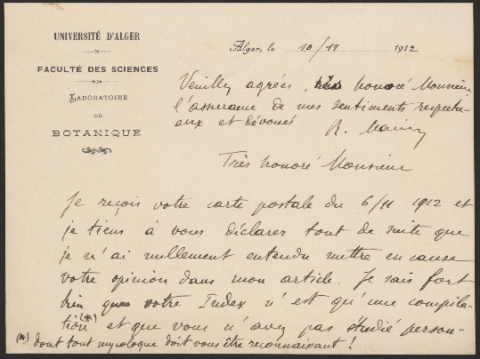 UNIVERSITÉ D'ALGER
FACULTÉ DES SCIENCES
LABORATOIRE
DE
BOTANIQUE
Alger, le 10/11 1912
Veuillez agréer, très honoré Monsieur,
l'assurance de mes sentiments respectu-
eux et dévoués R. Maire
Très honoré Monsieur
Je reçois votre carte postale du 6/11 1912 et
je tiens à vous déclarer tout de suite que
je n'ai nullement entendu mettre en cause
votre opinion dans mon article. Je sais fort
bien que votre Index n'est qu'une compila-
tion (*) et que vous n'avez pas étudié person-
(*) dont tout mycologue doit vous être reconnaissant !